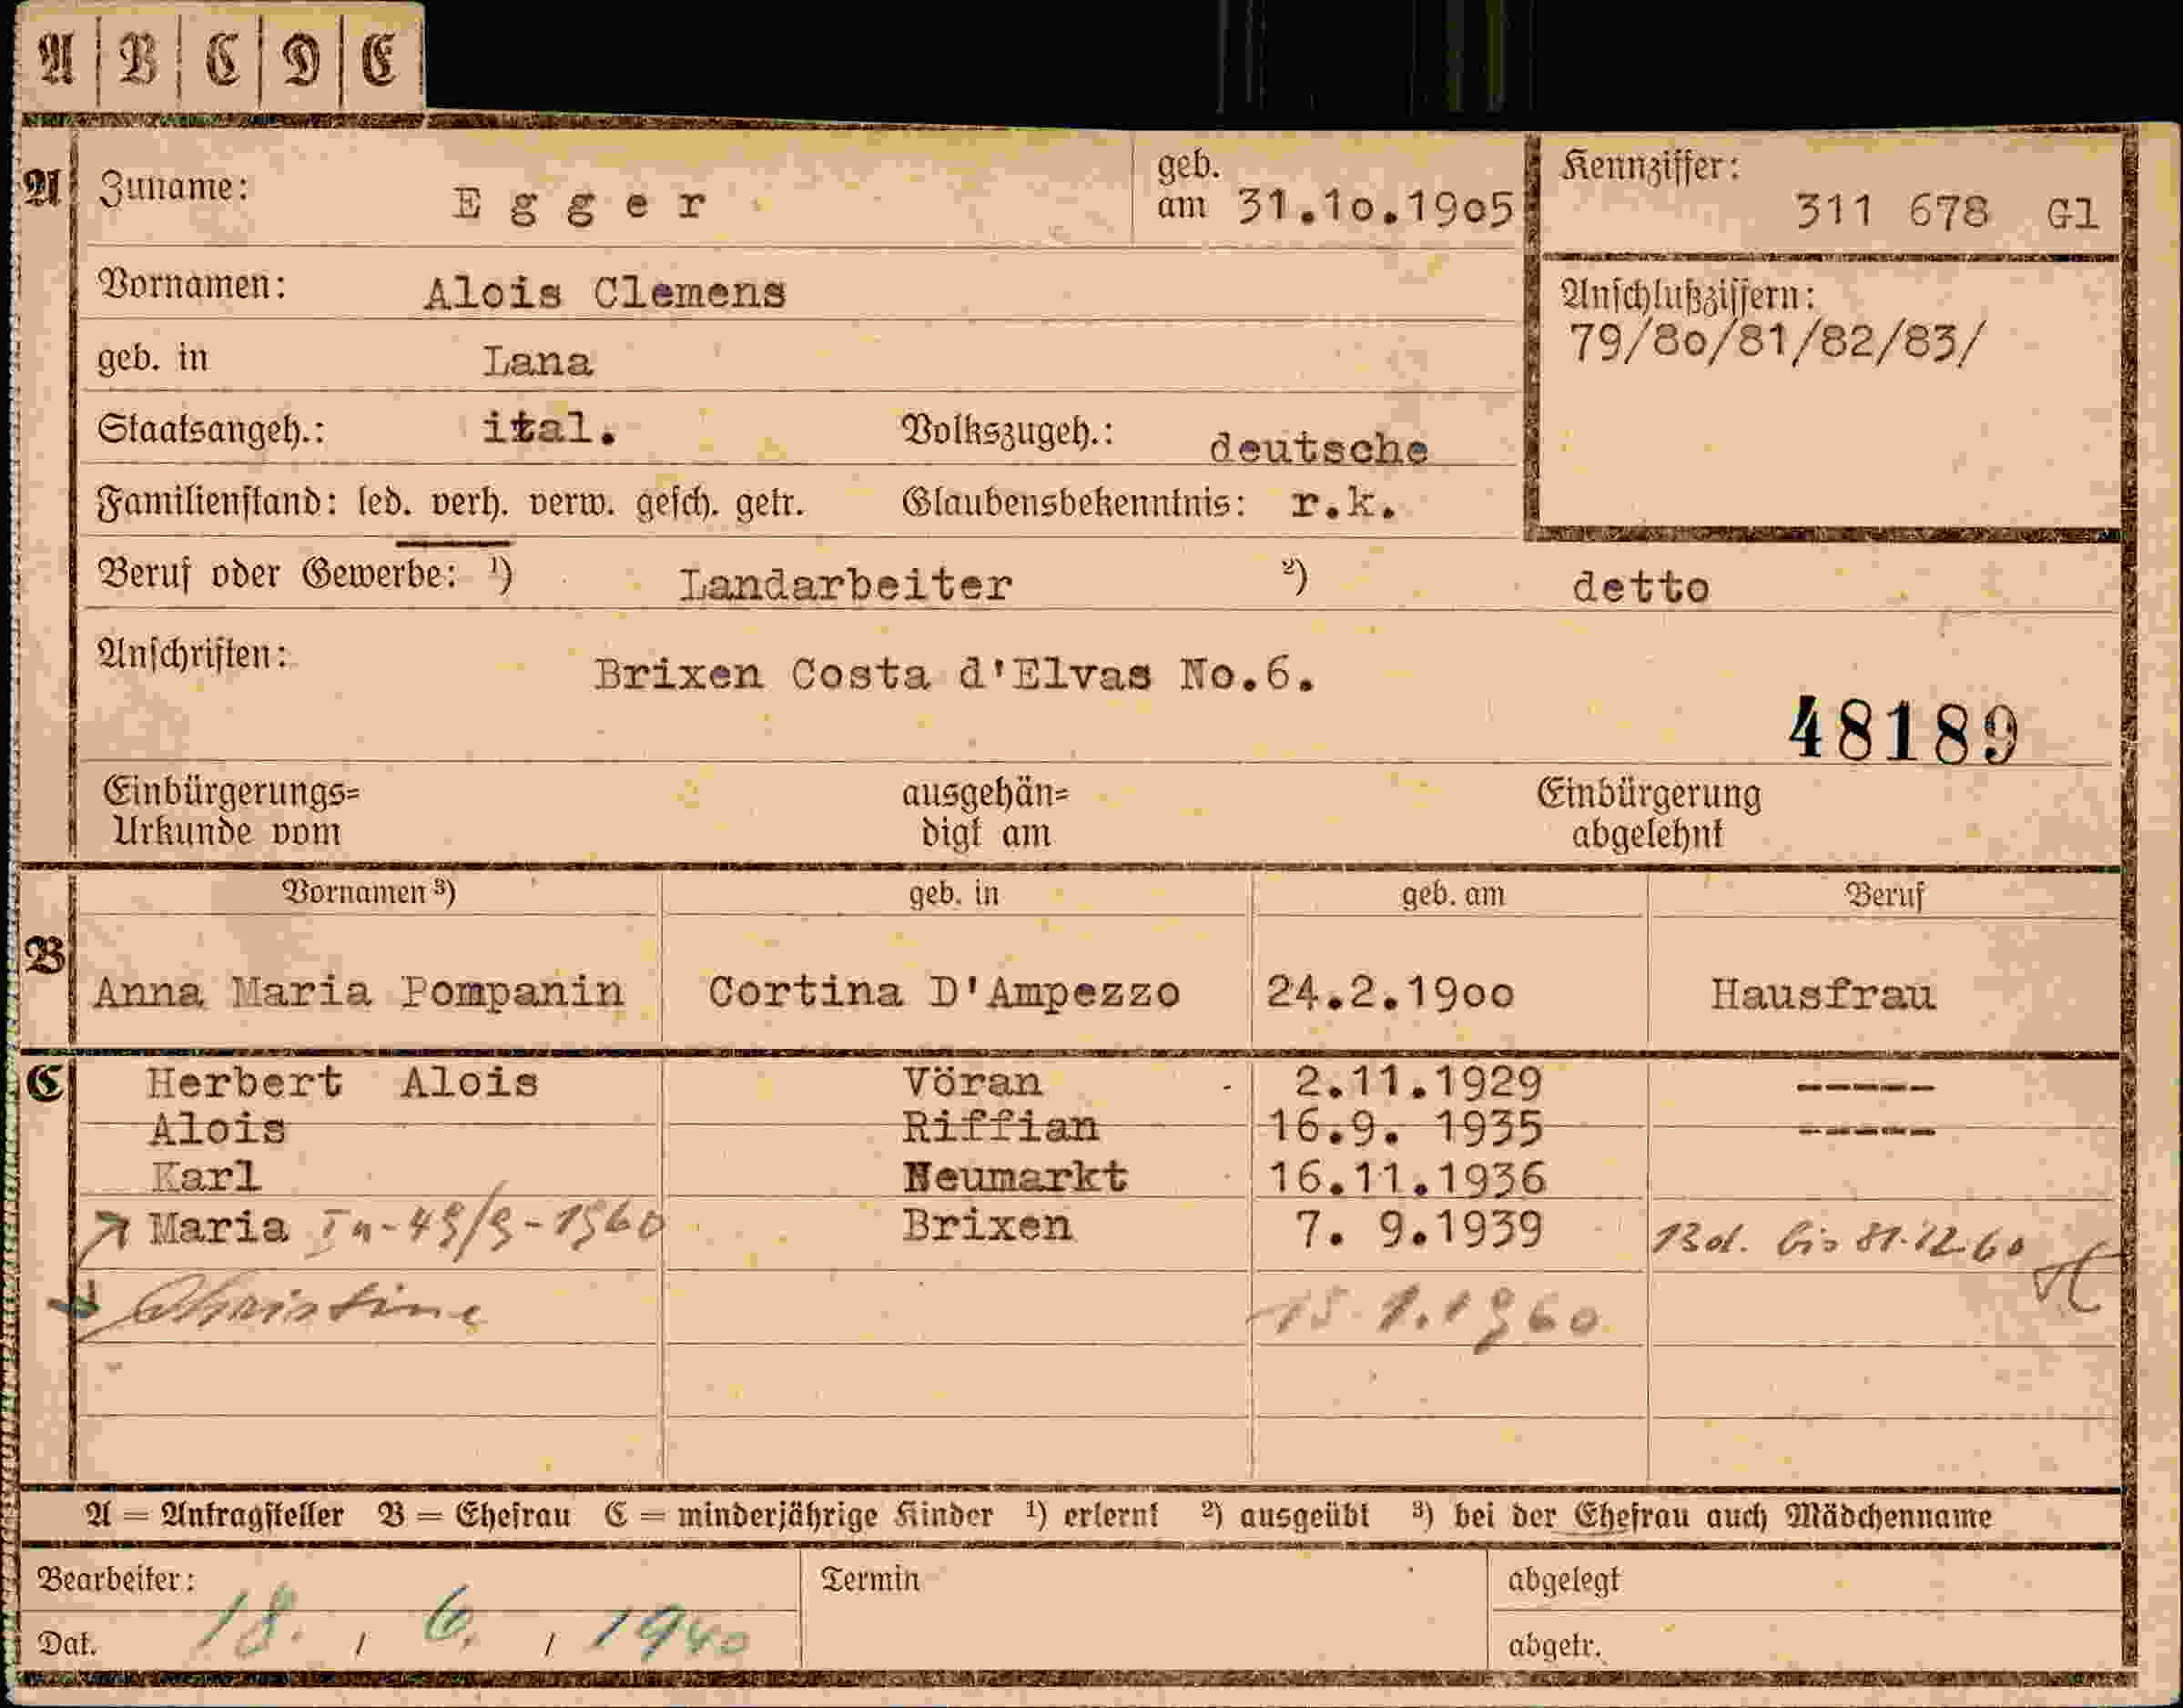 A B C D E
A Zuname: Egger geb. am 31.10.1905 Kennziffer: 311 678 Gl
Vornamen: Alois Clemens Anschlußziffern:
79/80/81/82/83/
geb. in Lana
Staatsangeh.: ital. Volkszugeh.: deutsche
Familienstand: led. verh. verw. gesch. getr. Glaubensbekenntnis: r.k.
Beruf oder Gewerbe: ¹) Landarbeiter ²) detto
Anschriften: Brixen Costa d'Elvas No.6.
48189
Einbürgerungs= ausgehän= Einbürgerung
Urkunde vom digt am abgelehnt
Vornamen ³) geb. in geb. am Beruf
B Anna Maria Pompanin Cortina D'Ampezzo 24.2.1900 Hausfrau
C Herbert Alois Vöran 2.11.1929 -----
Alois Riffian 16.9. 1935 -----
Karl Neumarkt 16.11.1936
Maria Brixen 7. 9.1939 bis 31.12.60
Christine 15.1.1960
A = Antragsteller B = Ehefrau C = minderjährige Kinder ¹) erlernt ²) ausgeübt ³) bei der Ehefrau auch Mädchenname
Bearbeiter: Termin abgelegt
Dat. 18. / 6. / 1940 abgetr.